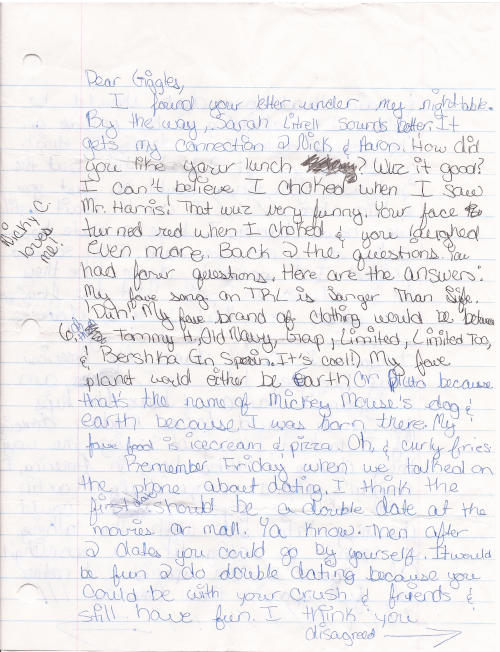 Dear Giggles,
I found your letter under my nightable.
By the way, Sarah Litrell sounds better. It
gets my connection 2 Nick & Aaron. How did
you like your lunch ? Wuz it good?
I can't believe I choked when I saw
Mr. Harris! That wuz very funny. Your face
turned red when I choked & you laughed
even more. Back 2 the questions. You
had four questions. Here are the answers:
My fave song on TRL is Larger Than Life.
Duh! My fave brand of clothing would be between
6. Tommy H, Old Navy, Gap, Limited, Limited Too,
& Bershka (In Spain. It's cool!) My fave
planet would either be Earth or Pluto because
that's the name of Mickey Mouse's dog &
earth because I was born there. My
fave food is icecream & pizza. Oh, & curly fries.
Remember Friday when we talked on
the phone about dating. I think the
first date should be a double date at the
movies or mall. Ya know. Then after
2 dates you could go by yourself. It would
be fun 2 do double dating because you
could be with your crush & friends &
still have fun. I think you
disagreed
Nicky C.
loves
me!